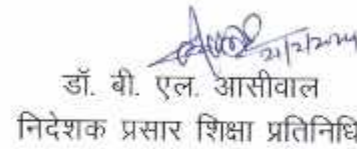 21/2/2024
डॉ. बी. एल. आसीवाल
निदेशक प्रसार शिक्षा प्रतिनिधि